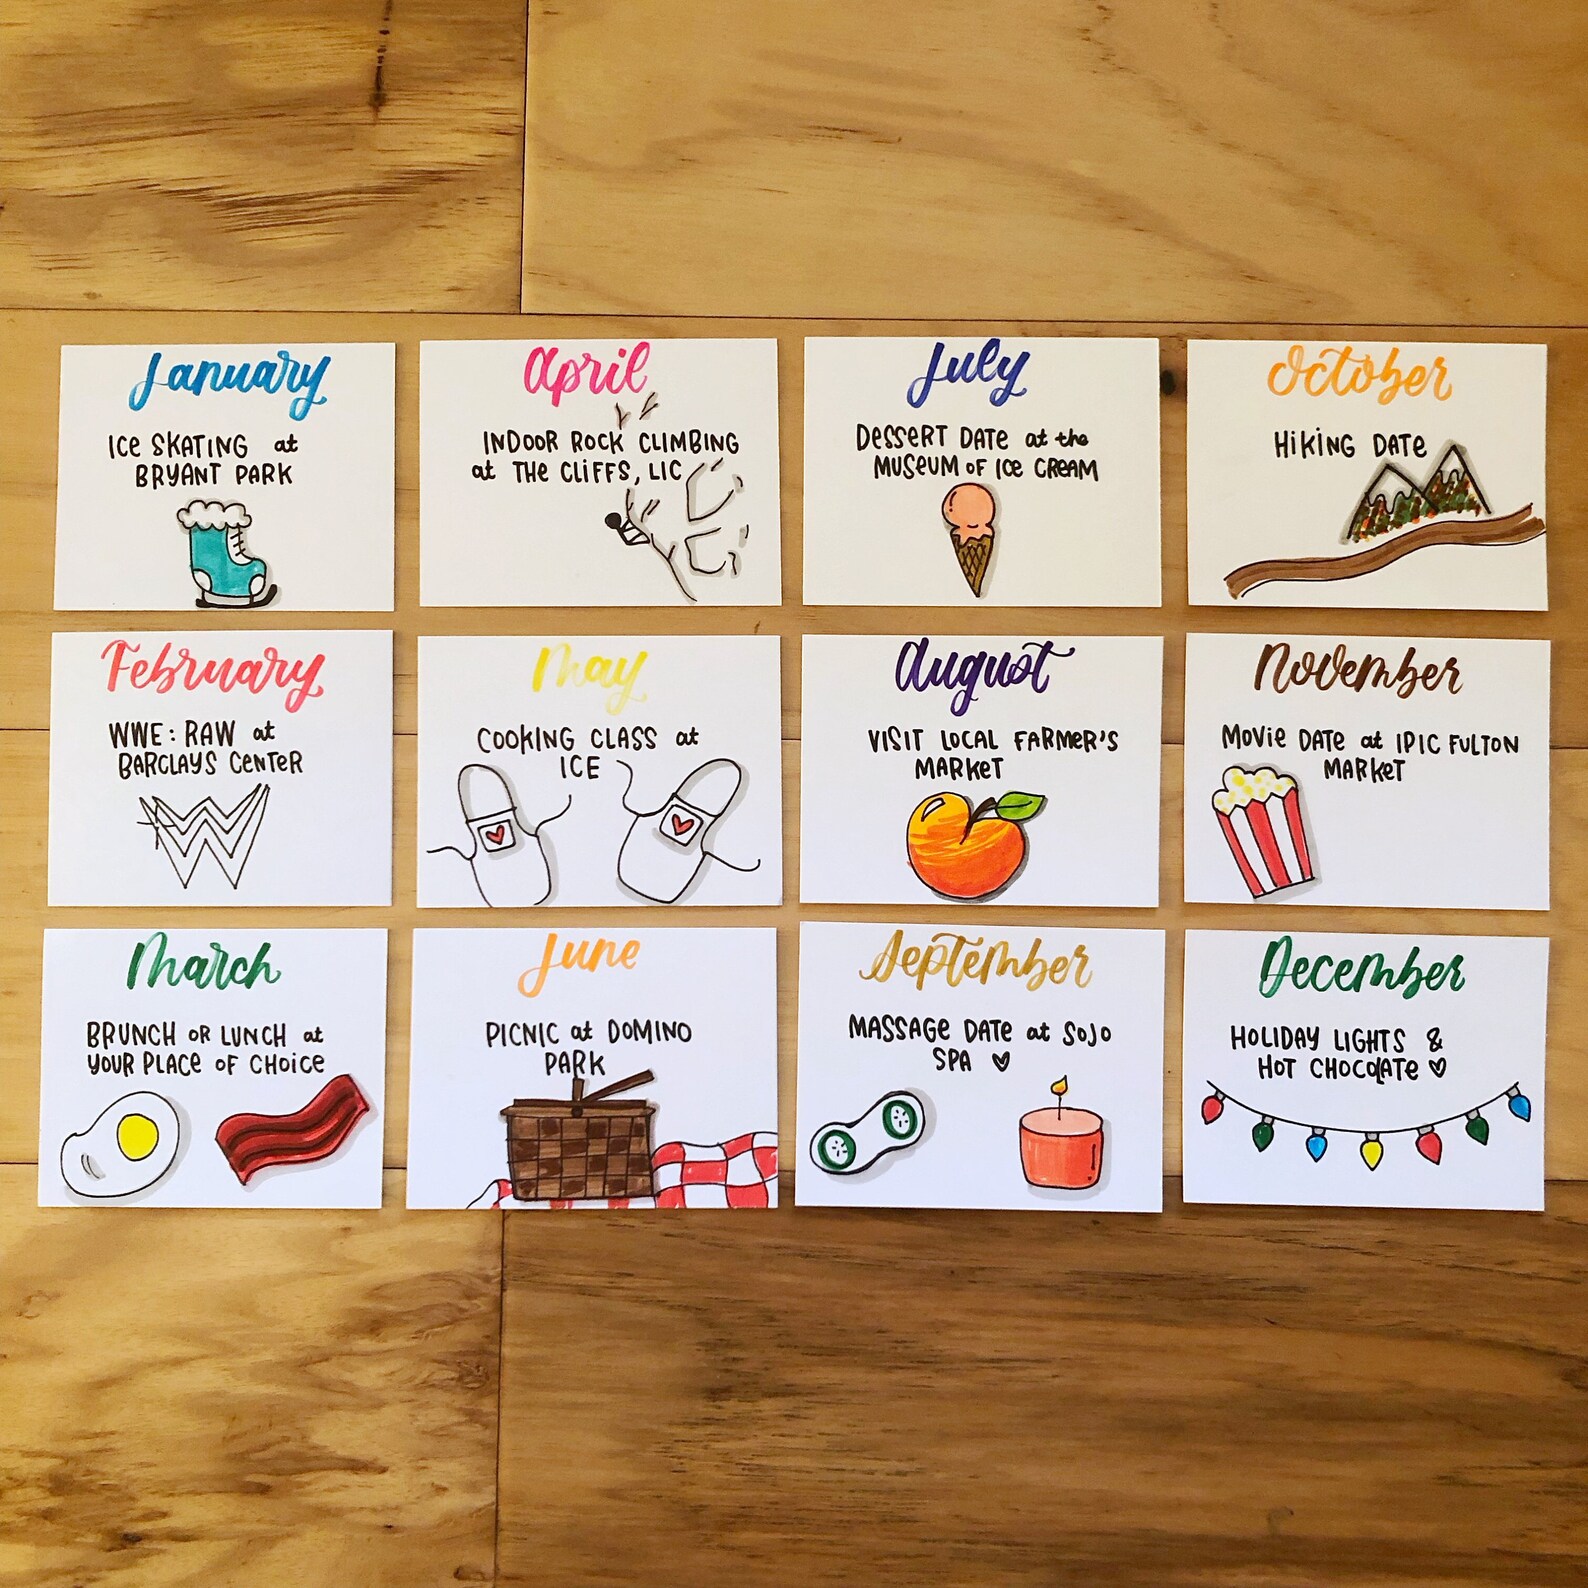 January
ICE SKATING at
BRYANT PARK
February
WWE: RAW at
BARCLAYS CENTER
March
BRUNCH OR LUNCH at
YOUR PLACE OF CHOICE
April
INDOOR ROCK CLIMBING
at THE CLIFFS, LIC
May
COOKING CLASS at
ICE
June
PICNIC at DOMINO
PARK
July
DESSERT DATE at the
MUSEUM OF ICE CREAM
August
VISIT LOCAL FARMER'S
MARKET
September
MASSAGE DATE at SOJO
SPA ♡
October
HIKING DATE
November
MOVIE DATE at IPIC FULTON
MARKET
December
HOLIDAY LIGHTS &
HOT CHOCOLATE ♡